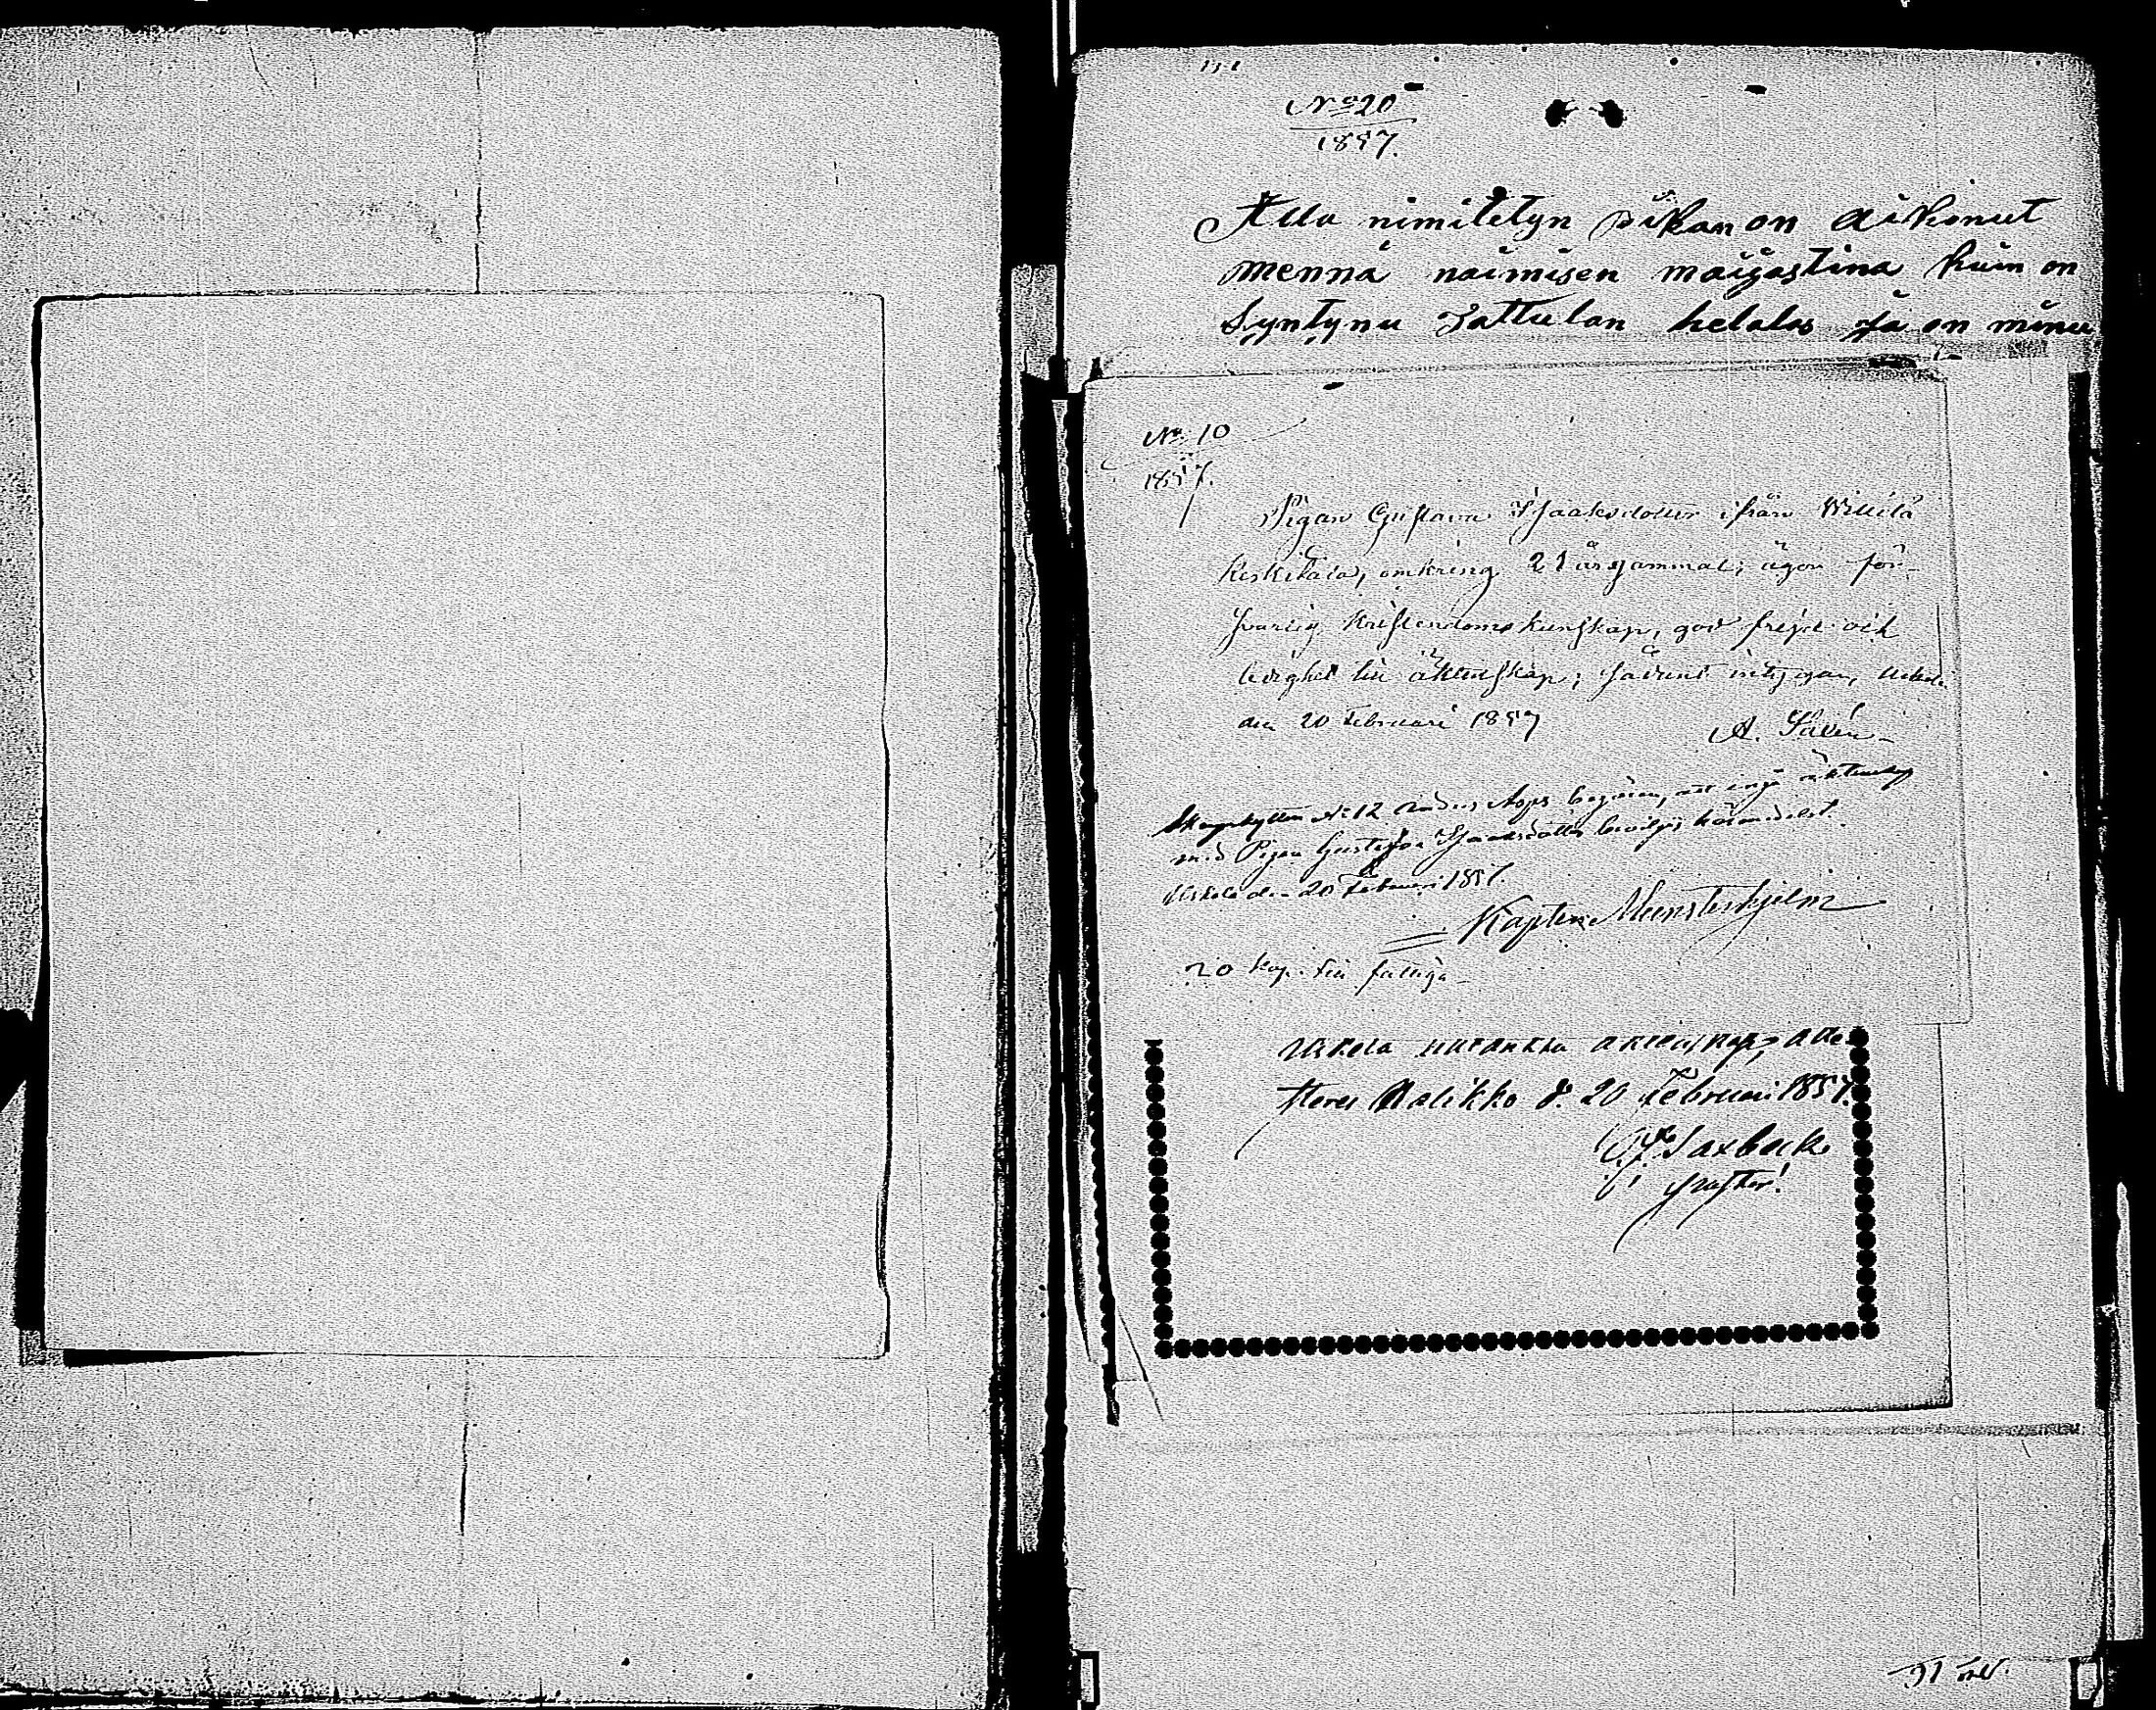 No 20
1857.
Alla nimitetyn pikan on aikonut
menna naimisen maijastina kuin on
Syntynu Jattulan helalas ja on minu
No 10
1857.
Pigan Gustava Isaaksdotter ifrån Willilä
Keskitalo, omkring 21 år gammal; äger för-
svarlig kristendomskunskap, god frejd och
ledighet till äktenskap; sådant intygar, Uskela
den 20 Februari 1857
A. Savén
No 12 begäran, att ingå äktenskap
med Pigan Gustava Isaaksdotter beviljas härmedelst.
Uskela den 20 Februari 1857.
Kapten Munsterhjelm
20 kop. till fattiga
Uskela äktenskap, atte-
steras Halikko d. 20 Februari 1857.
Saxbäck
Pastor.